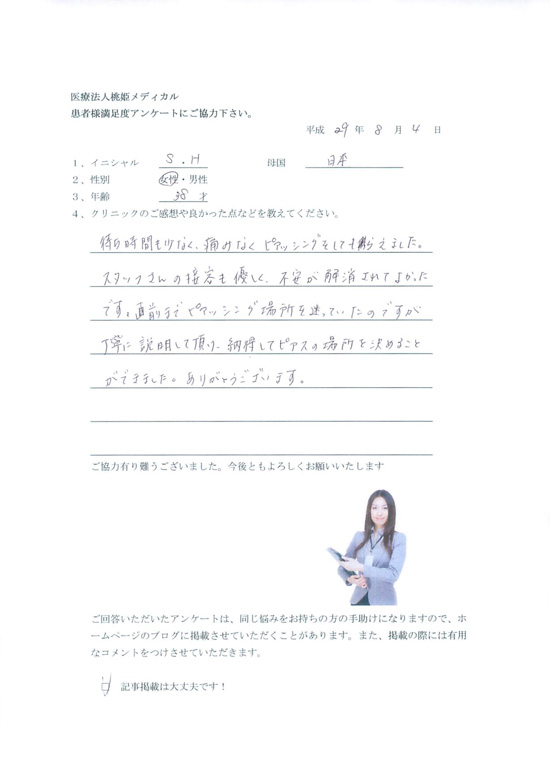 医療法人桃姫メディカル
患者様満足度アンケートにご協力下さい。
平成 29 年 8 月 4 日
1、イニシャル S.H 母国 日本
2、性別 女性・男性
3、年齢 38 才
4、クリニックのご感想や良かった点などを教えてください。
待ち時間も少なく、痛みなくピアッシングをしてもらえました。
スタッフさんの接客も優しく、不安が解消されてよかった
です。直前までピアッシング場所を迷っていたのですが
丁寧に説明して頂き、納得してピアスの場所を決めること
ができました。ありがとうございます。
ご協力有り難うございました。今後ともよろしくお願いいたします
ご回答いただいたアンケートは、同じ悩みをお持ちの方の手助けになりますので、ホ
ームページのブログに掲載させていただくことがあります。また、掲載の際には有用
なコメントをつけさせていただきます。
記事掲載は大丈夫です！